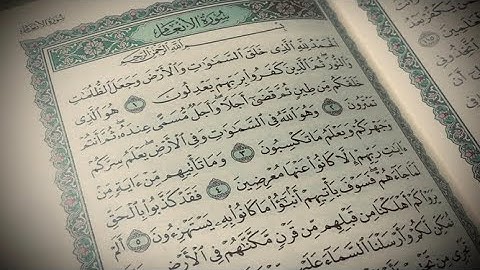 سُورَةُ الأَنْعَامِ
بِسْمِ اللَّهِ الرَّحْمَٰنِ الرَّحِيمِ
الْحَمْدُ لِلَّهِ الَّذِي خَلَقَ السَّمَاوَاتِ وَالْأَرْضَ وَجَعَلَ الظُّلُمَاتِ
وَالنُّورَ ثُمَّ الَّذِينَ كَفَرُوا بِرَبِّهِمْ يَعْدِلُونَ ١ هُوَ الَّذِي
خَلَقَكُم مِّن طِينٍ ثُمَّ قَضَىٰ أَجَلًا وَأَجَلٌ مُّسَمًّى عِندَهُ ثُمَّ أَنتُمْ
تَمْتَرُونَ ٢ وَهُوَ اللَّهُ فِي السَّمَاوَاتِ وَفِي الْأَرْضِ يَعْلَمُ سِرَّكُمْ
وَجَهْرَكُمْ وَيَعْلَمُ مَا تَكْسِبُونَ ٣ وَمَا تَأْتِيهِم مِّنْ آيَةٍ مِّنْ
آيَاتِ رَبِّهِمْ إِلَّا كَانُوا عَنْهَا مُعْرِضِينَ ٤ فَقَدْ كَذَّبُوا بِالْحَقِّ
لَمَّا جَاءَهُمْ فَسَوْفَ يَأْتِيهِمْ أَنبَاءُ مَا كَانُوا بِهِ يَسْتَهْزِئُونَ ٥ أَلَمْ
يَرَوْا كَمْ أَهْلَكْنَا مِن قَبْلِهِم مِّن قَرْنٍ مَّكَّنَّاهُمْ فِي الْأَرْضِ
نُمَكِّن لَّكُمْ وَأَرْسَلْنَا السَّمَاءَ عَلَيْهِم